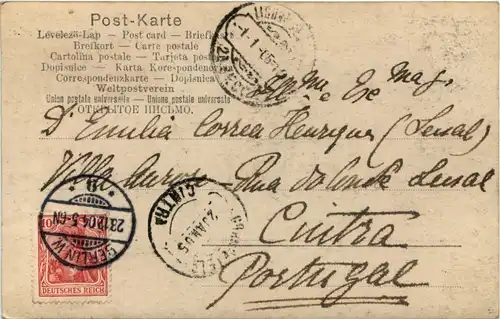 Post-Karte
Levelezö-Lap — Post card — Briefkaart
Brefkort — Carte postale
Cartolina postale — Tarjeta postal
Dopisnice — Karta Korespondencyjna
Correspondenzkarte — Dopisnica
Weltpostverein
Union postale universelle — Unione postale universale
ОТКРЫТОЕ ПИСЬМО.
D. Emilia Correa Henriques (Senal)
Villa Aurora - Rua do Conde Senal
Cintra
Portugal
BERLIN W
23.12.04.5-6N.
10
DEUTSCHES REICH
CINTRA
2 JAN 05